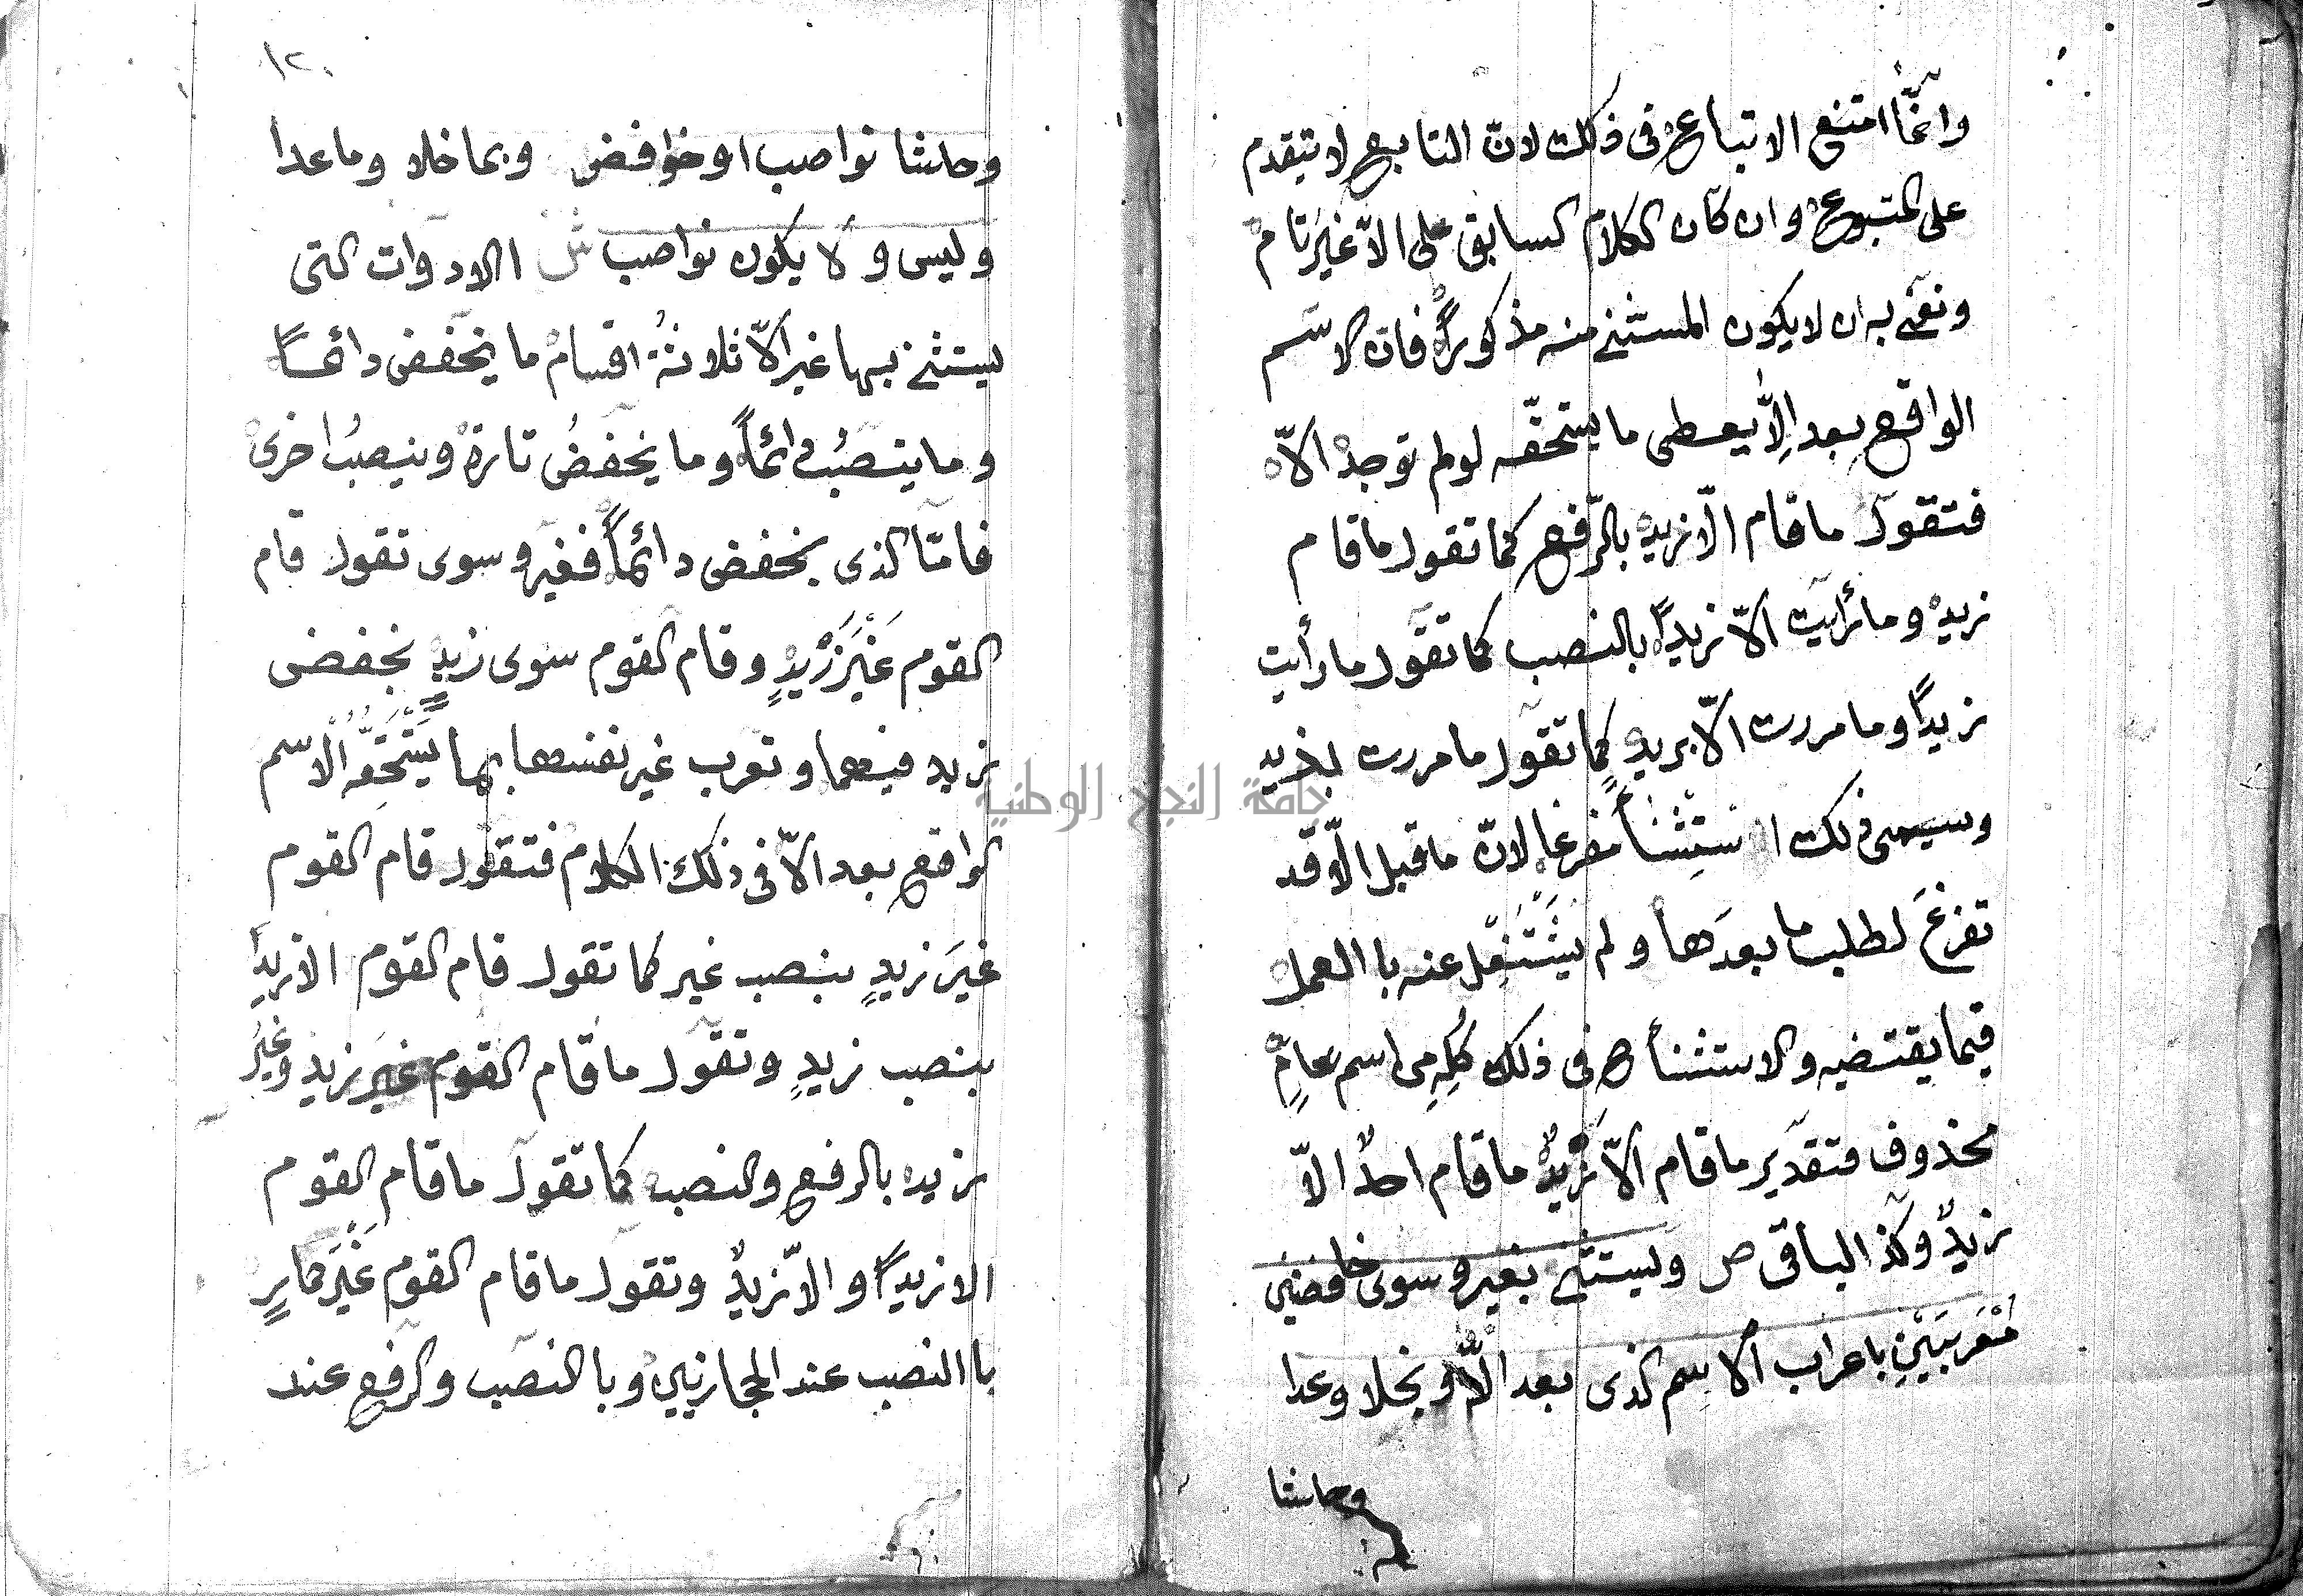 وانما امتنع الاتباع فى ذلك لان التابع لا يتقدم
على المتبوع وان كان الكلام السابق على الا غير تام
ونعنى به ان لا يكون المستثنى منه مذكوراً فان الاسم
الواقع بعد إلا يعطى ما يستحقه لو لم توجد الا
فتقول ما قام الا زيد بالرفع كما تقول ما قام
زيد وما رأيت الا زيداً بالنصب كما تقول ما رأيت
زيداً وما مررت الا بزيد كما تقول ما مررت بزيد
وسيمى ذلك استثنأ مفرغا لان ما قبل الا قد
تفرغ لطلب ما بعدها ولم يشتغل عنه با العمل
فيما يقتضيه والاستثنأ فى ذلك كله من اسم عامٍ
محذوف فتقدير ما قام الا زيدٌ ما قام احدٌ الا
زيدٌ وكذ الباقى ص ويستثنى بغير وسوى خافضين
معربين باعراب الاسم الذى بعد الا وبخلا وعدا
وحاشا
١٢٠
وحاشا نواصب او خوافض وبما خلا وما عدا
وليس ولا يكون نواصب ش الادوات التى
يستثنى بها غير الا ثلاثة اقسام ما يخفض دائماً
وما ينصبُ دائماً وما يخفضُ تارة وينصبُ اخرى
فامّا الذى يخفض دائماً فغير وسوى تقول قام
القوم غَيْرَ زَيْدٍ وقام القوم سوى زيدٍ بخفض
زيد فيهما وتعرب غير نفسها بما يستحقه الاسم
الواقع بعد الا فى ذلك الكلام فتقول قام القوم
غيرَ زيدٍ بنصب غير كما تقول قام القوم الا زيداً
بنصب زيدٍ وتقول ما قام القوم غير زيد وغيرُ
زيد بالرفع والنصب كما تقول ما قام القوم
الا زيداً والا زيدٌ وتقول ما قام القوم غَيْرَ حمارٍ
با النصب عند الحجازيين وبا النصب والرفع عند
جامعة النجاح الوطنية